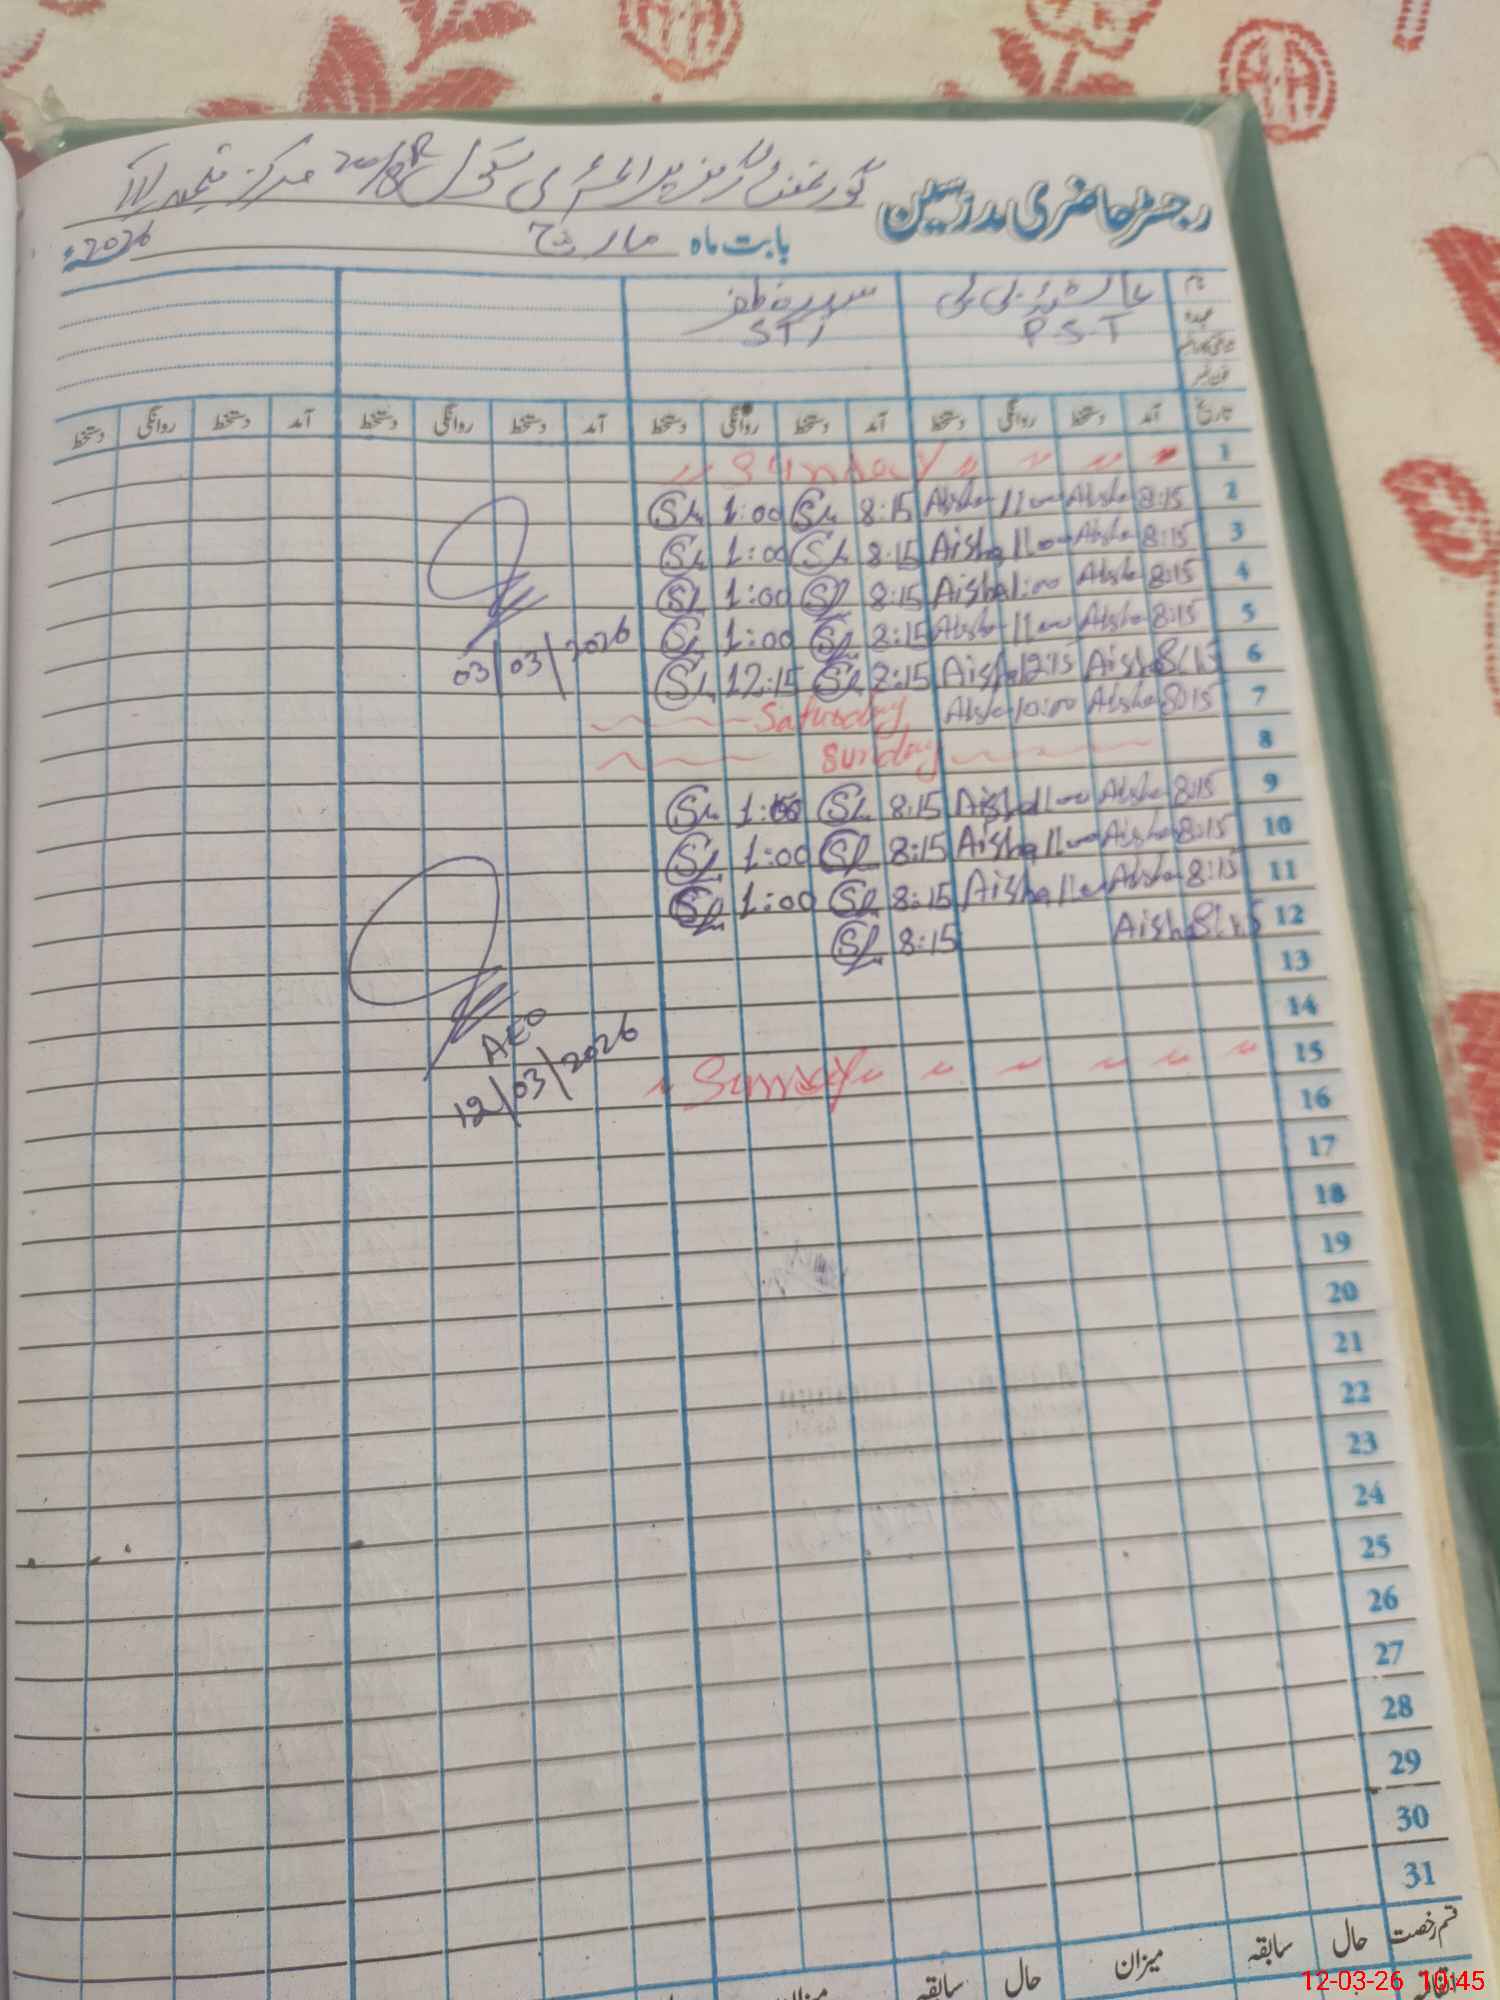 رجسٹر حاضری مدرسین گورنمنٹ گرلز پرائمری سکول 200/8R مرکز
بابت ماہ مارچ 2026ء
نام عائشہ بی بی سدرہ ظفر
عہدہ P.S.T STI
فون نمبر
تاریخ آمد دستخط روانگی دستخط آمد دستخط روانگی دستخط آمد دستخط روانگی دستخط آمد دستخط روانگی دستخط
1 " " " " Sunday "
2 8:15 Aisha 1:00 Aisha 8:15 1:00
3 8:15 Aisha 1:00 Aisha 8:15 1:00
4 8:15 Aisha 1:00 Aisha 8:15 1:00
5 8:15 Aisha 1:00 Aisha 8:15 1:00
6 8:15 Aisha 12:15 Aisha 8:15 12:15
03/03/2026
7 8:15 Aisha 10:00 Aisha Saturday
8 Sunday
9 8:15 Aisha 1:00 Aisha 8:15 1:00
10 8:15 Aisha 1:00 Aisha 8:15 1:00
11 8:15 Aisha 1:00 Aisha 8:15 1:00
12 8:15 Aisha 8:15
13
14
AEO
12/03/2026
15 " " " " " Sunday "
16
17
18
19
20
21
22
23
24
25
26
27
28
29
30
31
قسم رخصت حال سابقہ میزان حال سابقہ میزان
12-03-26 10:45